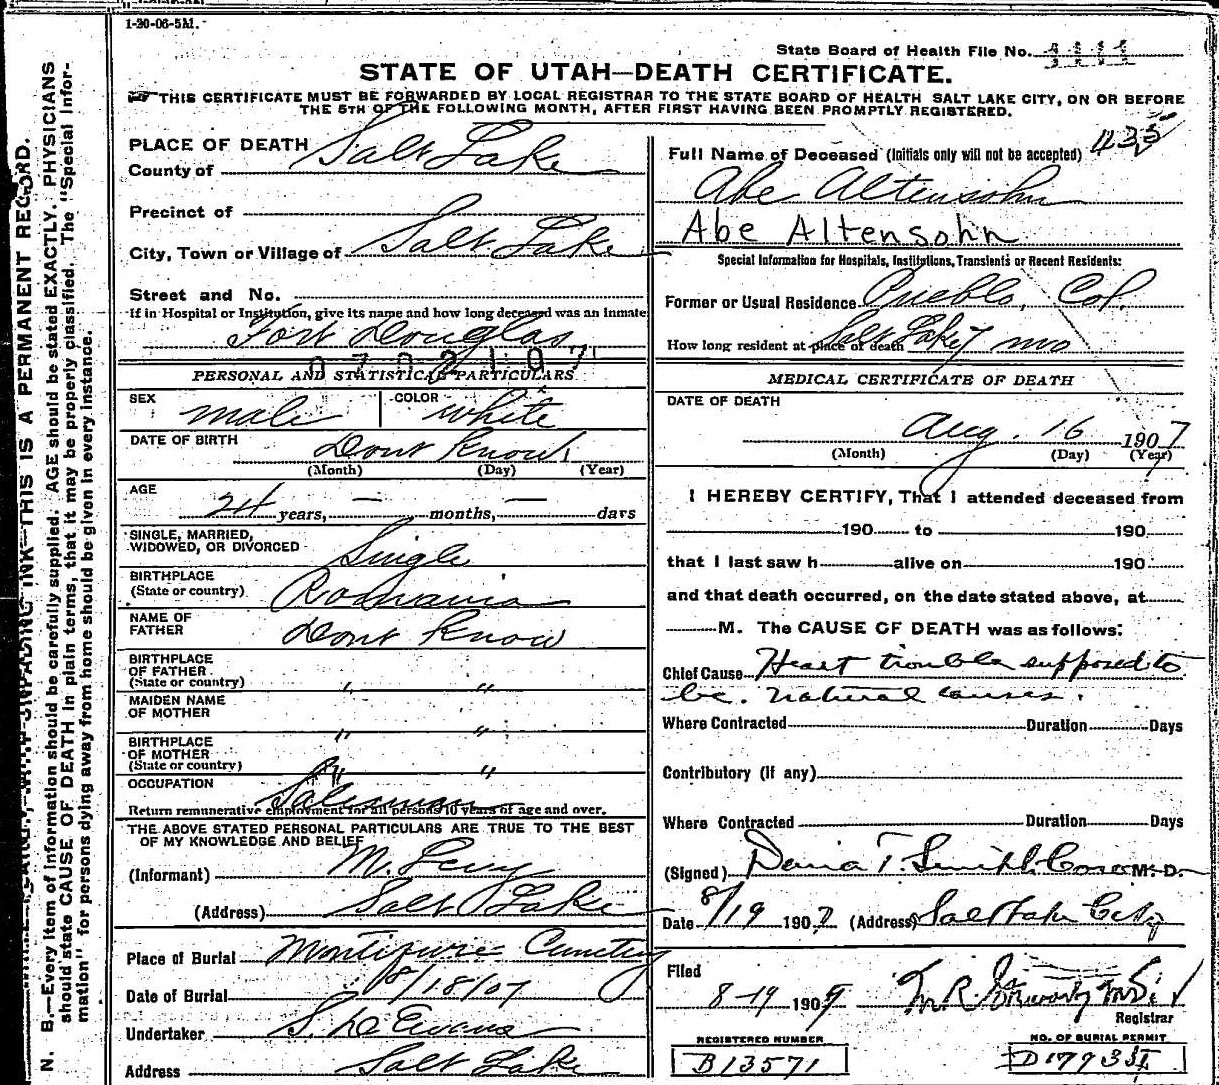 1-20-06-5M.
State Board of Health File No.
STATE OF UTAH—DEATH CERTIFICATE.
THIS CERTIFICATE MUST BE FORWARDED BY LOCAL REGISTRAR TO THE STATE BOARD OF HEALTH SALT LAKE CITY, ON OR BEFORE
THE 5TH OF THE FOLLOWING MONTH, AFTER FIRST HAVING BEEN PROMPTLY REGISTERED.
PLACE OF DEATH
County of Salt Lake
Precinct of
City, Town or Village of Salt Lake
Street and No.
If in Hospital or Institution, give its name and how long deceased was an inmate
Fort Douglas
PERSONAL AND STATISTICAL PARTICULARS
SEX male COLOR white
DATE OF BIRTH Dont Know
(Month) (Day) (Year)
AGE 24 years, — months, — days
SINGLE, MARRIED,
WIDOWED, OR DIVORCED Single
BIRTHPLACE
(State or country) Romania
NAME OF
FATHER Dont Know
BIRTHPLACE
OF FATHER
(State or country) " "
MAIDEN NAME
OF MOTHER " "
BIRTHPLACE
OF MOTHER
(State or country) " "
OCCUPATION Salesman
Return remunerative employment for all persons 10 years of age and over.
THE ABOVE STATED PERSONAL PARTICULARS ARE TRUE TO THE BEST
OF MY KNOWLEDGE AND BELIEF
(Informant) M. Levy
(Address) Salt Lake
Place of Burial Montifiure Cemetery
Date of Burial 8/18/07
Undertaker S. D. Evans
Address Salt Lake
435
Full Name of Deceased (Initials only will not be accepted)
Abe Altensohn
Abe Altensohn
Special Information for Hospitals, Institutions, Transients or Recent Residents:
Former or Usual Residence Pueblo, Col.
How long resident at place of death Salt Lake 7 mo
MEDICAL CERTIFICATE OF DEATH
DATE OF DEATH
Aug. 16 1907
(Month) (Day) (Year)
I HEREBY CERTIFY, That I attended deceased from
190 to 190
that I last saw h alive on 190
and that death occurred, on the date stated above, at
M. The CAUSE OF DEATH was as follows:
Chief Cause Heart trouble supposed to
be natural causes.
Where Contracted Duration Days
Contributory (If any)
Where Contracted Duration Days
(Signed) Dana T. Smith M. D.
Date 8/19 1907 (Address) Salt Lake City
Filed
8-19 190
Registrar
REGISTERED NUMBER
B13571
NO. OF BURIAL PERMIT
N. B.—Every item of information should be carefully supplied. AGE should be stated EXACTLY. PHYSICIANS
should state CAUSE OF DEATH in plain terms, that it may be properly classified. The "Special Infor-
mation" for persons dying away from home should be given in every instance.
UNFADING INK—THIS IS A PERMANENT RECORD.